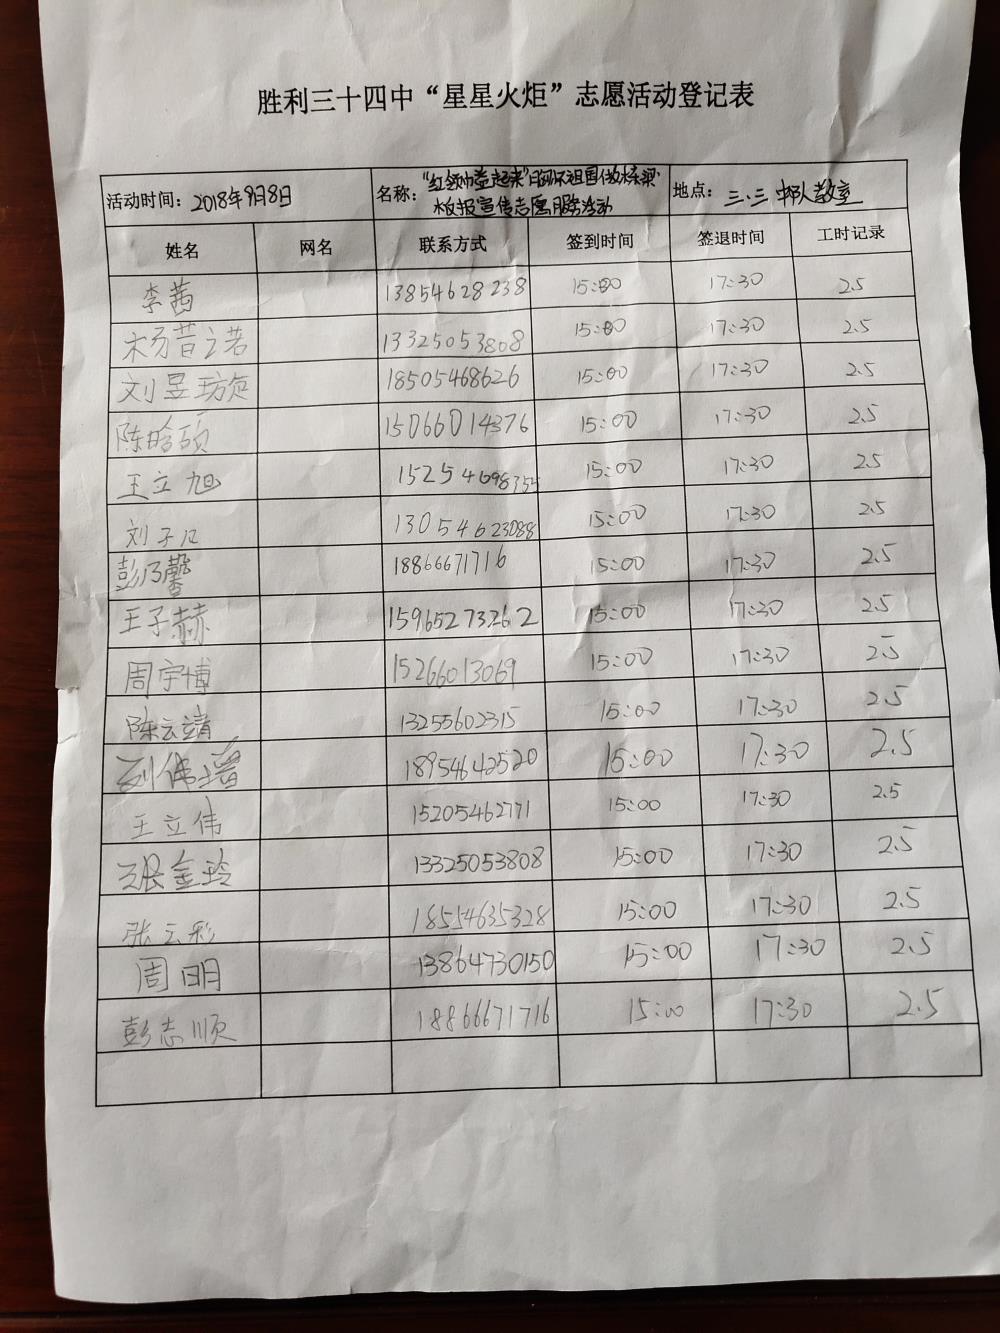 胜利三十四中“星星火炬”志愿活动登记表
活动时间：2018年9月8日 名称：“红领巾益起来” 胸怀祖国做栋梁 地点：三.三 中队教室
板报宣传志愿服务活动
姓名 网名 联系方式 签到时间 签退时间 工时记录
李茜 13854628238 15:00 17:30 2.5
杨昔之若 13325053808 15:00 17:30 2.5
刘昱 18505468626 15:00 17:30 2.5
陈晗硕 15066014376 15:00 17:30 2.5
王立旭 15254698355 15:00 17:30 2.5
刘子 13054623088 15:00 17:30 2.5
彭乃馨 18866671716 15:00 17:30 2.5
王子赫 15965273262 15:00 17:30 2.5
周宇博 15266013069 15:00 17:30 2.5
陈云靖 13255602315 15:00 17:30 2.5
刘伟 18954642520 15:00 17:30 2.5
王立伟 15205462771 15:00 17:30 2.5
张金玲 13325053808 15:00 17:30 2.5
张云彩 18554635328 15:00 17:30 2.5
周明 13864730150 15:00 17:30 2.5
彭志顺 18866671716 15:00 17:30 2.5